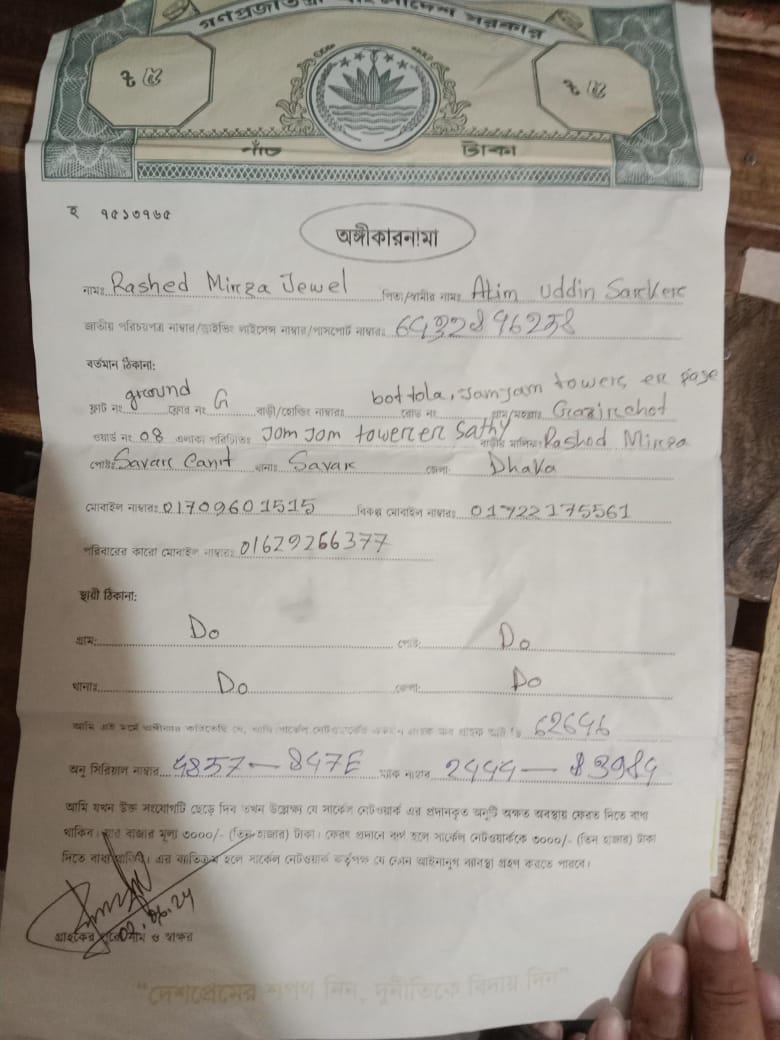 গণপ্রজাতন্ত্রী বাংলাদেশ সরকার
৳ ৫ ৳ ৫
পাঁচ টাকা
ই ৭৫১৩৭৬৫
অঙ্গীকারনামা
নামঃ Rashed Mirza Jewel পিতা/স্বামীর নামঃ Alim Uddin Sarker
জাতীয় পরিচয়পত্র নাম্বার/ড্রাইভিং লাইসেন্স নাম্বার/পাসপোর্ট নাম্বারঃ 6432896258
বর্তমান ঠিকানা:
ফ্লাট নং ground ফ্লোর নং G বাড়ী/হোল্ডিং নাম্বারঃ bottola, Jamjam tower er pase রোড নং গ্রাম/মহল্লাঃ Gazirchot
ওয়ার্ড নং 08 এলাকা পরিচিতিঃ Jom Jom tower er Sathy বাড়ীর মালিকঃ Rashed Mirza
পোষ্টঃ Savar Cant থানাঃ Savar জেলা: Dhaka
মোবাইল নাম্বারঃ 01709601515 বিকল্প মোবাইল নাম্বারঃ 01722175561
পরিবারের কারো মোবাইল নাম্বারঃ 01629266377
স্থায়ী ঠিকানা:
গ্রাম: Do পোষ্ট: Do
থানাঃ Do জেলা: Do
আমি এই মর্মে অঙ্গীকার করিতেছি যে, আমি সার্কেল নেটওয়ার্কের একজন গ্রাহক যার গ্রাহক আইডি 62646
অনু সিরিয়াল নাম্বার 4857 — 847E ম্যাক নাম্বার 2444 — 83984
আমি যখন উক্ত সংযোগটি ছেড়ে দিব তখন উল্লেখ্য যে সার্কেল নেটওয়ার্ক এর প্রদানকৃত অনুটি অক্ষত অবস্থায় ফেরত দিতে বাধ্য
থাকিব। যার বাজার মূল্য ৩০০০/- (তিন হাজার) টাকা। ফেরৎ প্রদানে ব্যর্থ হলে সার্কেল নেটওয়ার্ককে ৩০০০/- (তিন হাজার) টাকা
দিতে বাধ্য থাকিব। এর ব্যতিক্রম হলে সার্কেল নেটওয়ার্ক কর্তৃপক্ষ যে কোন আইনানুগ ব্যবস্থা গ্রহণ করতে পারবে।
02.06.24
গ্রাহকের পুরো নাম ও স্বাক্ষর
"দেশপ্রেমের শপথ নিন, দুর্নীতিকে বিদায় দিন"